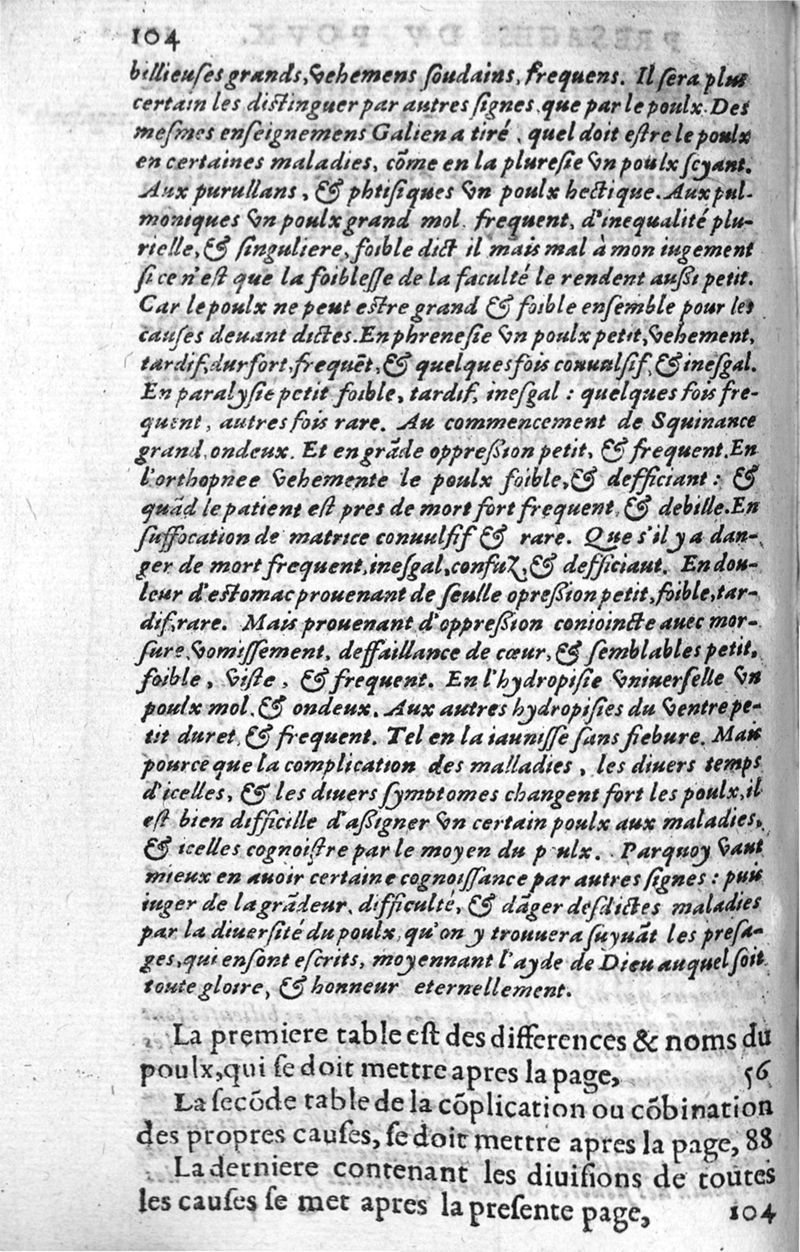 104
billieuses grands, vehemens soudains, frequens. Il sera plus
certain les distinguer par autres signes, que par le poulx. Des
mesmes enseignemens Galien a tiré, quel doit estre le poulx
en certaines maladies, cõme en la pluresie vn poulx scyant.
Aux purullans, & phtisiques vn poulx hectique. Aux pul-
moniques vn poulx grand mol, frequent, d'inequalité plu-
rielle, & singuliere, foible dict il mais mal à mon iugement
si ce n'est que la foiblesse de la faculté le rendent aussi petit.
Car le poulx ne peut estre grand & foible ensemble pour les
causes deuant dictes. En phrenesie vn poulx petit, vehement,
tardif, dur fort, frequẽt, & quelquesfois conuulsif, & inesgal.
En paralysie petit foible, tardif, inesgal : quelques fois fre-
quent, autres fois rare. Au commencement de Squinance
grand, ondeux. Et en grãde oppression petit, & frequent. En
l'orthopnee vehemente le poulx foible, & defficiant : &
quãd le patient est pres de mort fort frequent, & debille. En
suffocation de matrice conuulsif & rare. Que s'il y a dan-
ger de mort frequent, inesgal, confuz, & defficiant. En dou-
leur d'estomac prouenant de seulle opression petit, foible, tar-
dif, rare. Mais prouenant d'oppression conioincte auec mor-
sure, vomissement, deffaillance de cœur, & semblables petit,
foible, viste, & frequent. En l'hydropisie vniuerselle vn
poulx mol, & ondeux. Aux autres hydropisies du ventre pe-
tit duret, & frequent. Tel en la iaunisse sans fiebure. Mais
pource que la complication des malladies, les diuers temps
d'icelles, & les diuers symptomes changent fort les poulx, il
est bien difficille d'assigner vn certain poulx aux maladies,
& icelles cognoistre par le moyen du poulx. Parquoy vaut
mieux en auoir certaine cognoissance par autres signes : puis
iuger de la grãdeur, difficulté, & dãger desdictes maladies
par la diuersité du poulx, qu'on y trouuera suyuãt les presa-
ges, qui en sont escrits, moyennant l'ayde de Dieu auquel soit
toute gloire, & honneur eternellement.
La premiere table est des differences & noms du
poulx, qui se doit mettre apres la page, 56
La secõde table de la cõplication ou cõbination
des propres causes, se doit mettre apres la page, 88
La derniere contenant les diuisions de toutes
les causes se met apres la presente page, 104